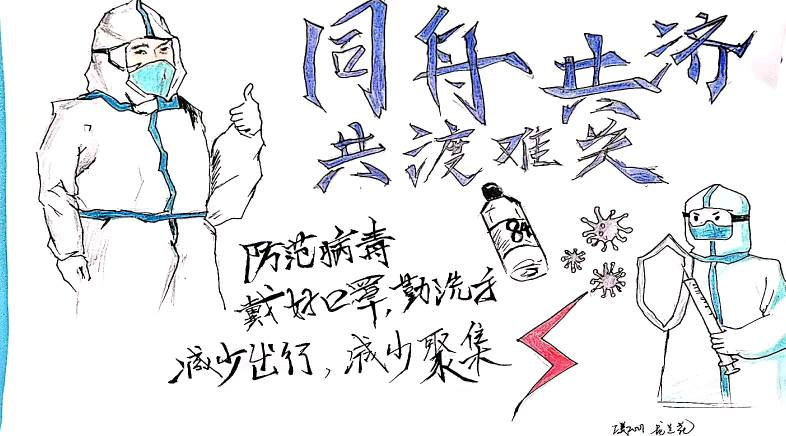 同舟共济
共渡难关
84
防范病毒
戴好口罩,勤洗手
减少出行,减少聚集